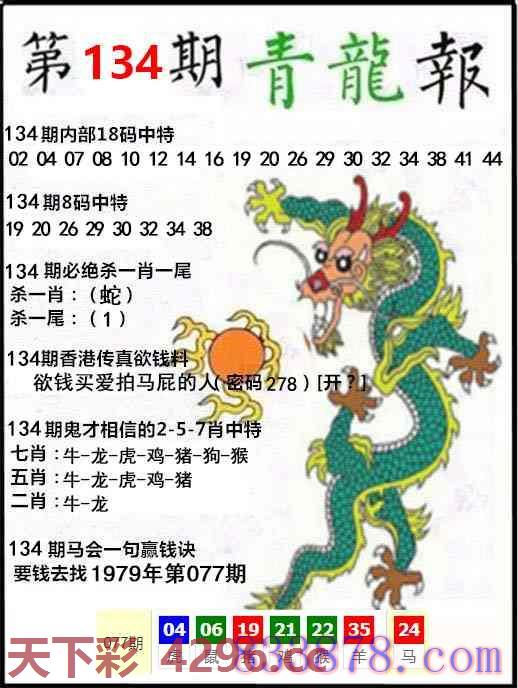 第134期 青龍報
134期内部18码中特
02 04 07 08 10 12 14 16 19 20 26 29 30 32 34 38 41 44
134期8码中特
19 20 26 29 30 32 34 38
134期必绝杀一肖一尾
杀一肖：（蛇）
杀一尾：（1）
134期香港传真欲钱料
欲钱买爱拍马屁的人（密码278）[开？]
134期鬼才相信的2-5-7肖中特
七肖：牛-龙-虎-鸡-猪-狗-猴
五肖：牛-龙-虎-鸡-猪
二肖：牛-龙
134期马会一句赢钱诀
要钱去找1979年第077期
077期 04 06 19 21 22 35 24
虎 鼠 猪 鸡 猴 羊 马
天下彩 4296.cc